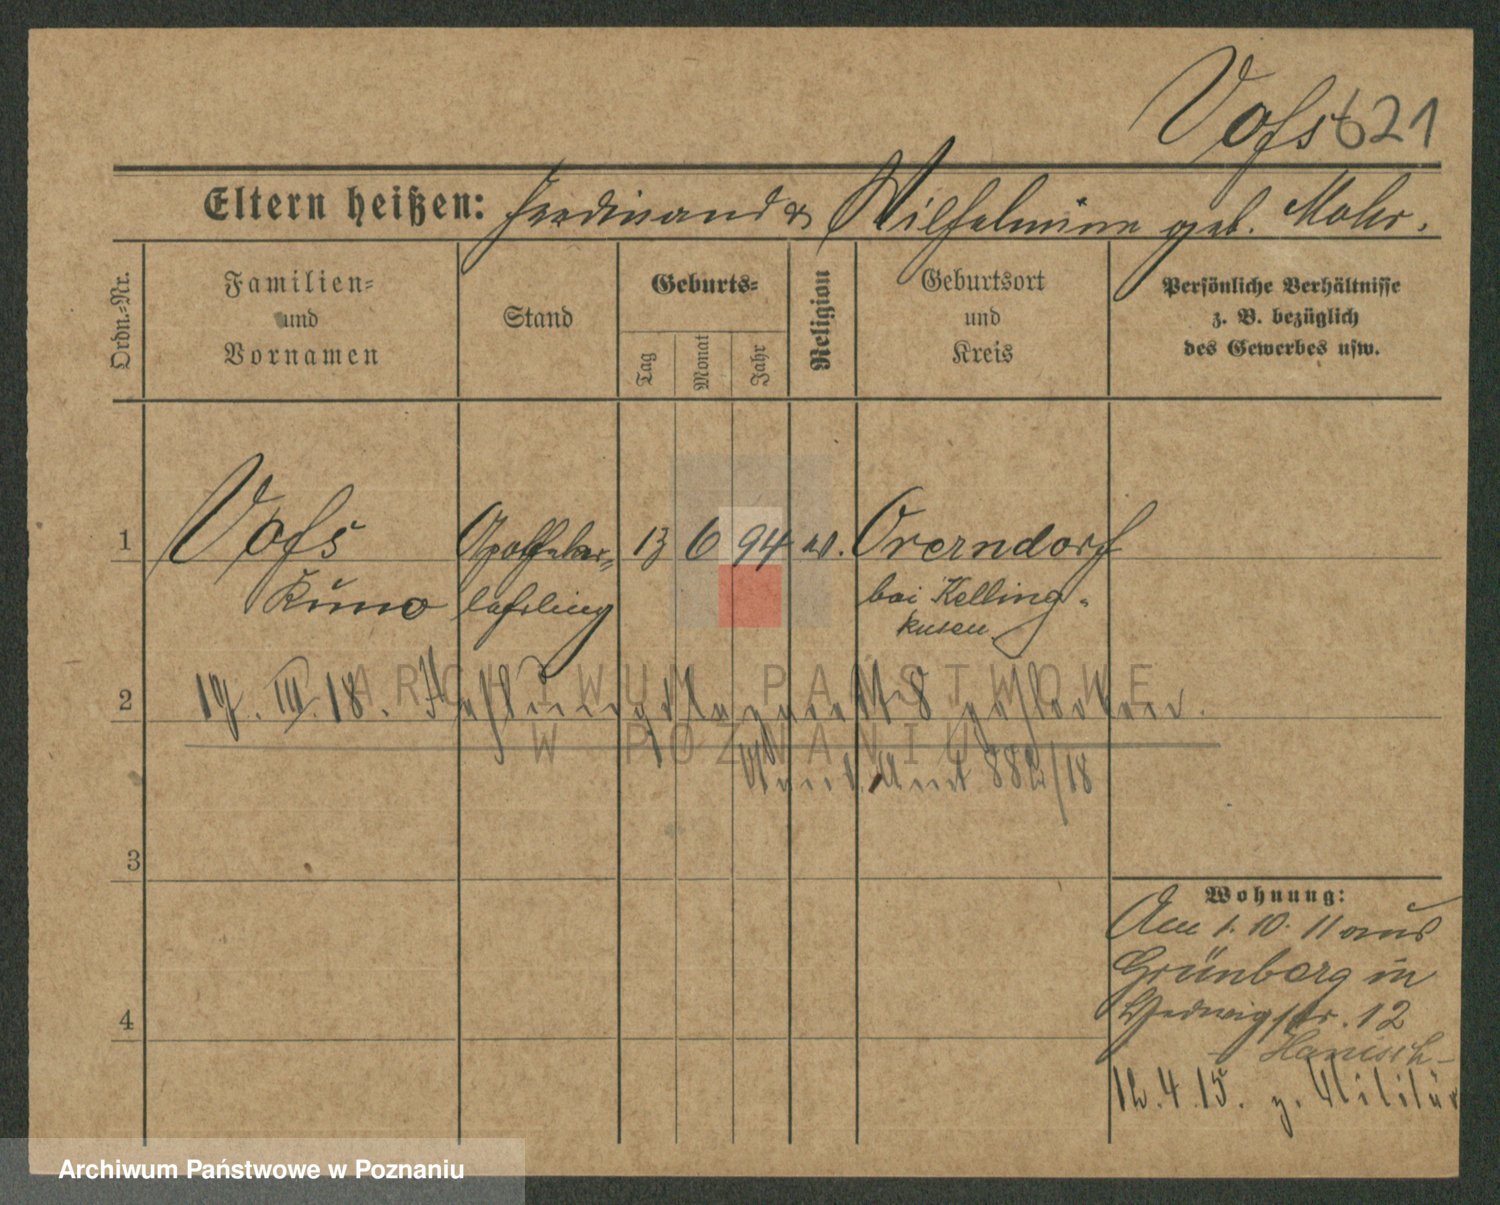 Voß 621
Eltern heißen: Ferdinand & Wilhelmine geb. Mohr.
Ordn.-Nr.
Familien-
und
Vornamen
Stand
Geburts-
Tag
Monat
Jahr
Religion
Geburtsort
und
Kreis
Persönliche Verhältnisse
z. B. bezüglich
des Gewerbes usw.
1 Voß Apotheker- 13 6 94 ev. Orerndorf
Kuno lehrling bei Kelling-
husen
2 17. III. 18. gestorben.
ARCHIWUM PAŃSTWOWE
W POZNANIU
Amt 882/18
3
Wohnung:
Am 1. 10. 11 aus
Grünberg in
Hedwigstr. 12
- Hanisch -
4
12. 4. 15. z. Militär
Archiwum Państwowe w Poznaniu